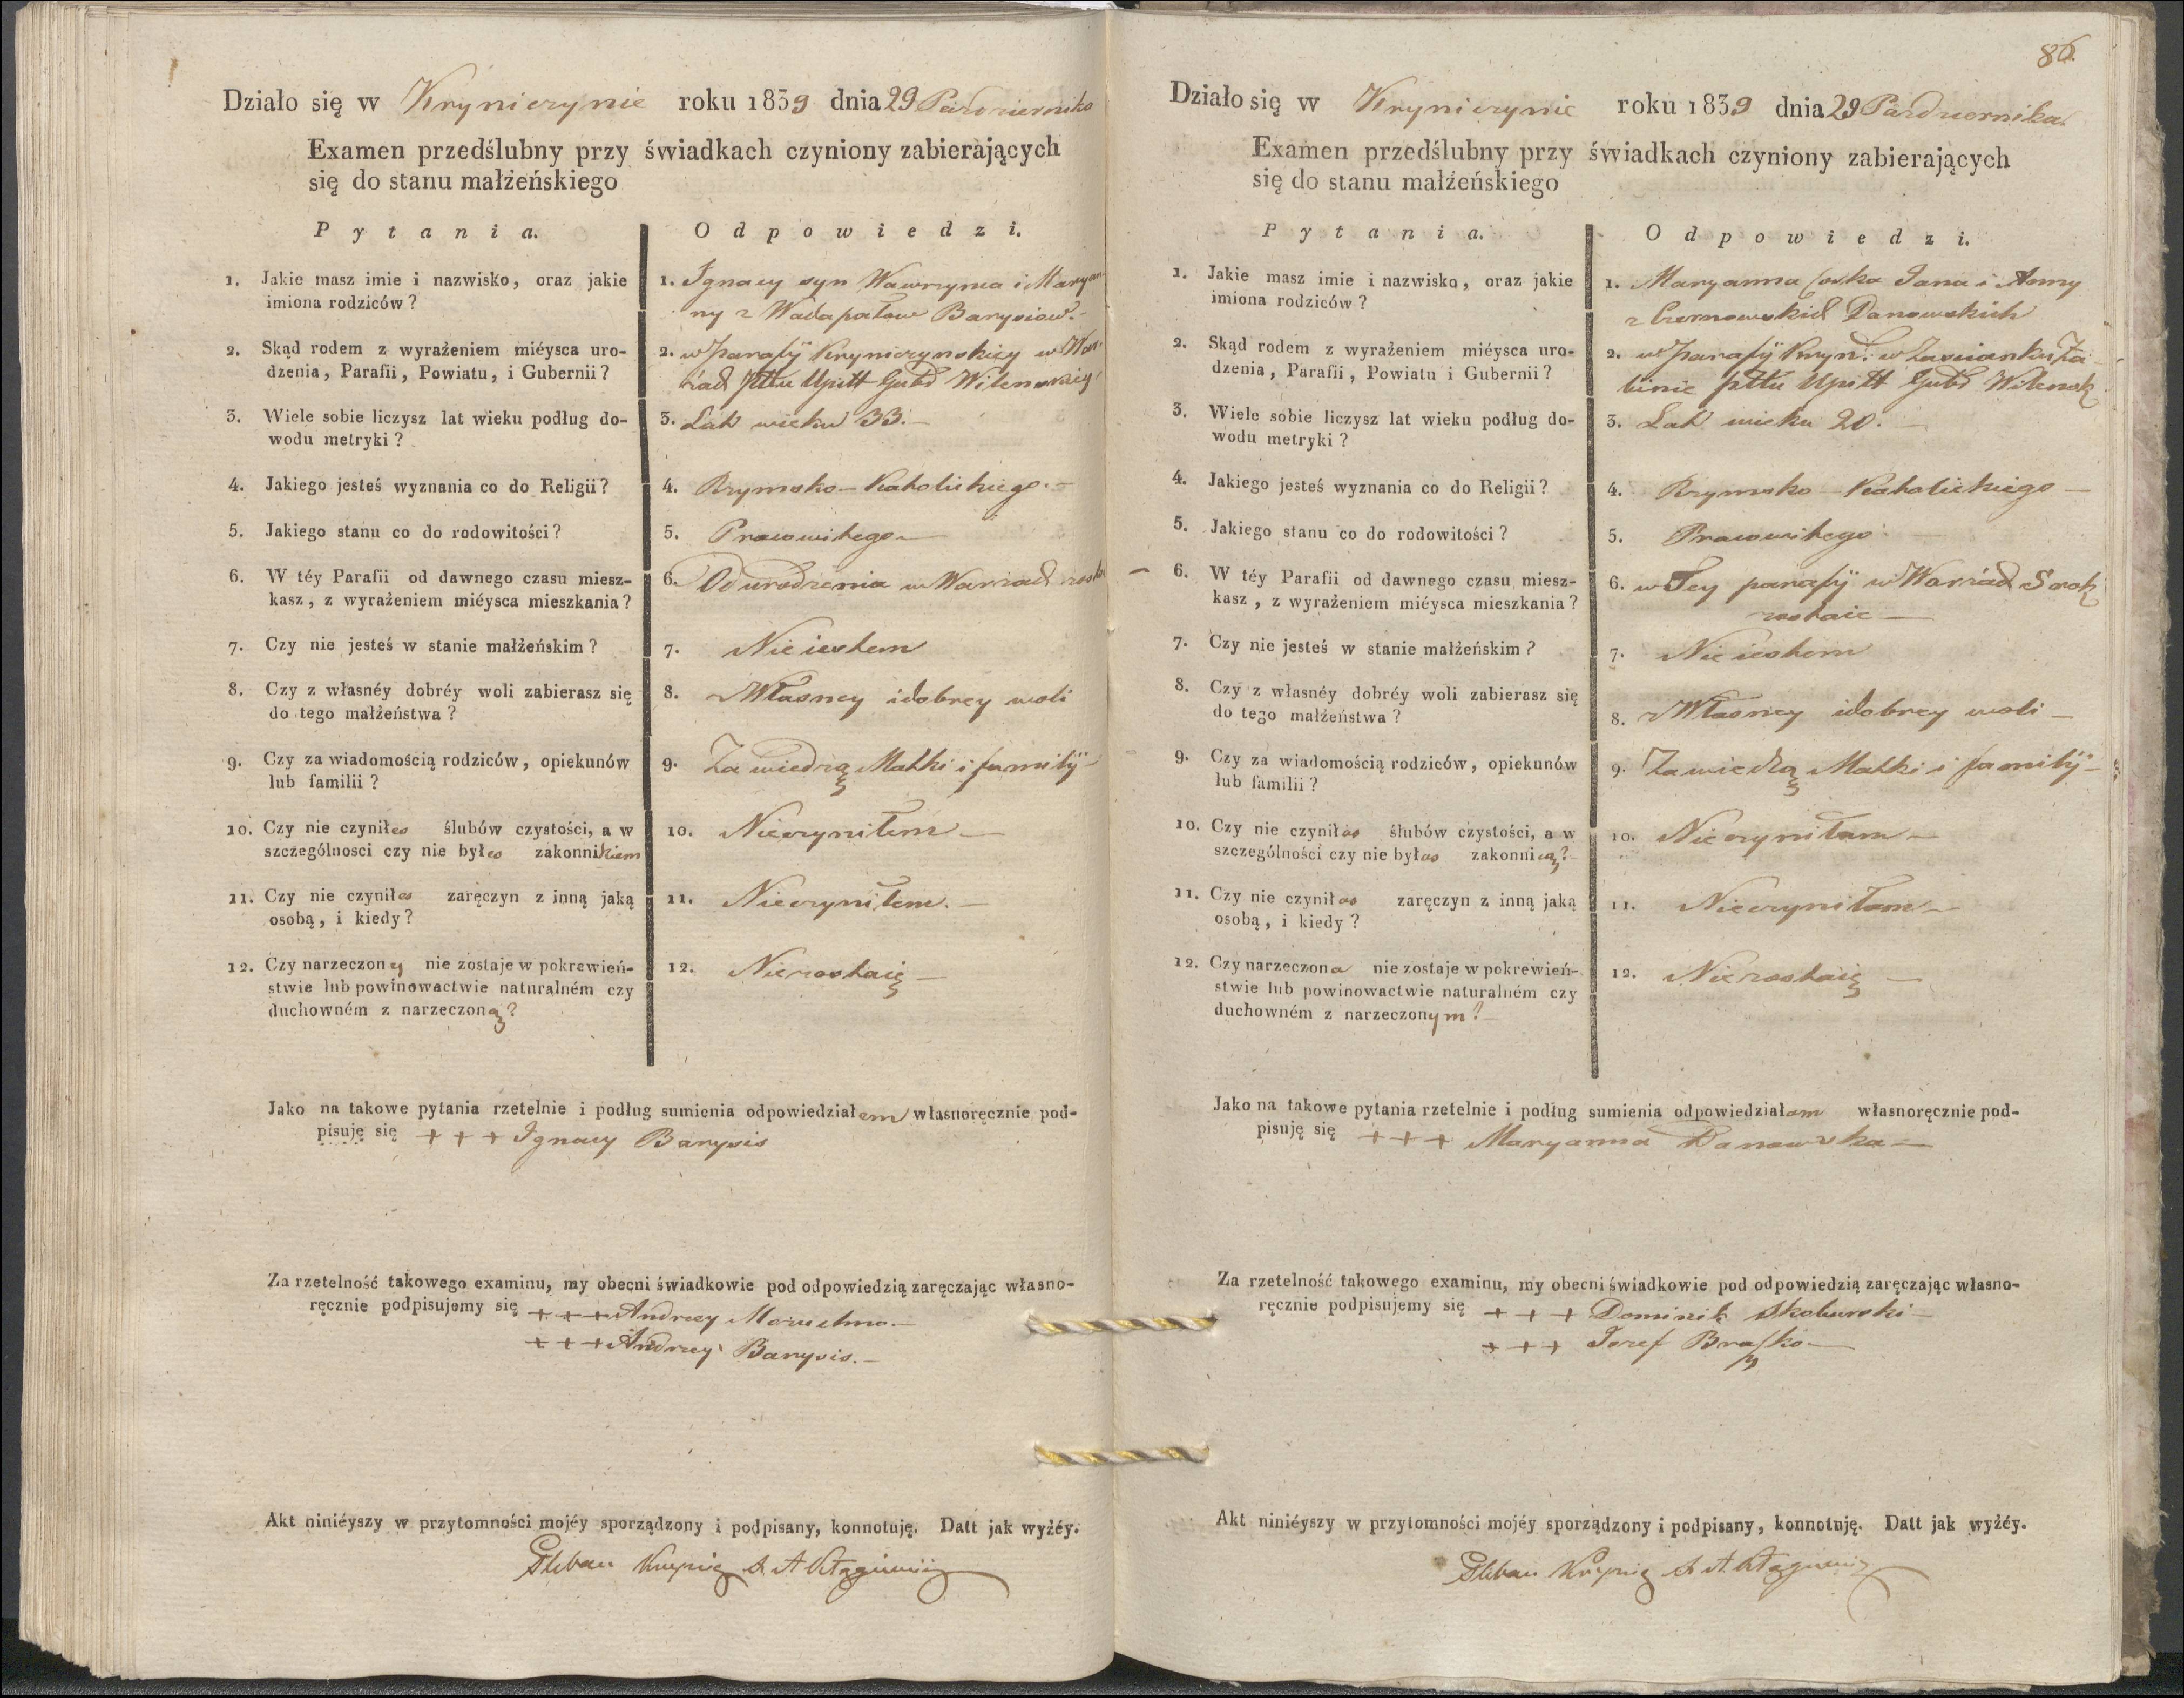 Działo się w Kryniczynie roku 1839 dnia 29 Pazdziernika
Examen przedślubny przy świadkach czyniony zabierających
się do stanu małżeńskiego
Pytania. Odpowiedzi.
1. Jakie masz imie i nazwisko, oraz jakie
imiona rodziców?
1. Ignacy syn Wawrzynca i Maryan-
ny z Wadapałow Barysiow.
2. Skąd rodem z wyrażeniem miéysca uro-
dzenia, Parafii, Powiatu, i Gubernii?
2. w Parafij Kryniczynskiey w
Pttu Upitt Gubr Wilenskiey
3. Wiele sobie liczysz lat wieku podług do-
wodu metryki?
3. Lat wieku 33.
4. Jakiego jesteś wyznania co do Religii?
4. Rzymsko-Katolickiego.
5. Jakiego stanu co do rodowitości?
5. Prawowitego
6. W téy Parafii od dawnego czasu miesz-
kasz, z wyrażeniem miéysca mieszkania?
6. Od urodzenia w
7. Czy nie jesteś w stanie małżeńskim?
7. Nie iestem
8. Czy z własnéy dobréy woli zabierasz się
do tego małżeństwa?
8. z Własney i dobrey woli
9. Czy za wiadomością rodziców, opiekunów
lub familii?
9. Za wiedzą Matki i familij
10. Czy nie czyniłes ślubów czystości, a w
szczególnosci czy nie byłes zakonnikiem
10. Nieczyniłem
11. Czy nie czyniłes zaręczyn z inną jaką
osobą, i kiedy?
11. Nieczyniłem.
12. Czy narzeczony nie zostaje w pokrewień-
stwie lub powinowactwie naturalném czy
duchowném z narzeczoną?
12. Niezostaię
Jako na takowe pytania rzetelnie i podług sumienia odpowiedziałem własnoręcznie pod-
pisuję się + + + Ignacy Barysis
Za rzetelność takowego examinu, my obecni świadkowie pod odpowiedzią zaręczając własno-
ręcznie podpisujemy się + + + Andrzey
+ + + Andrzey Barysis.
Akt niniéyszy w przytomności mojéy sporządzony i podpisany, konnotuję. Datt jak wyżéy.
Pleban
86.
Działo się w Kryniczynie roku 1839 dnia 29 Pazdziernika.
Examen przedślubny przy świadkach czyniony zabierających
się do stanu małżeńskiego
Pytania. Odpowiedzi.
1. Jakie masz imie i nazwisko, oraz jakie
imiona rodziców?
1. Maryanna Corka Jana i Anny
z Czernowskich Danowskich
2. Skąd rodem z wyrażeniem miéysca uro-
dzenia, Parafii, Powiatu i Gubernii?
2. w Parafij Kryn: w Zascianku
pttu Upitt Gubr Wilensk
3. Wiele sobie liczysz lat wieku podług do-
wodu metryki?
3. Lat wieku 20.
4. Jakiego jesteś wyznania co do Religii?
4. Rzymsko Katolickiego
5. Jakiego stanu co do rodowitości?
5. Prawowitego
6. W téy Parafii od dawnego czasu miesz-
kasz, z wyrażeniem miéysca mieszkania?
6. w Tey parafij w
zostaie
7. Czy nie jesteś w stanie małżeńskim?
7. Nie iestem
8. Czy z własnéy dobréy woli zabierasz się
do tego małżeństwa?
8. z Własney i dobrey woli
9. Czy za wiadomością rodziców, opiekunów
lub familii?
9. Za wiedzą Matki i familij
10. Czy nie czyniłas ślubów czystości, a w
szczególności czy nie byłas zakonnicą?
10. Nieczyniłam
11. Czy nie czyniłas zaręczyn z inną jaką
osobą, i kiedy?
11. Nieczyniłam
12. Czy narzeczona nie zostaje w pokrewień-
stwie lub powinowactwie naturalném czy
duchowném z narzeczonym?
12. Niezostaię
Jako na takowe pytania rzetelnie i podług sumienia odpowiedziałam własnoręcznie pod-
pisuję się + + + Maryanna Danowska
Za rzetelność takowego examinu, my obecni świadkowie pod odpowiedzią zaręczając własno-
ręcznie podpisujemy się + + + Dominik Skoburski
+ + + Jozef Braszko
Akt niniéyszy w przytomności mojéy sporządzony i podpisany, konnotuję. Datt jak wyżéy.
Pleban